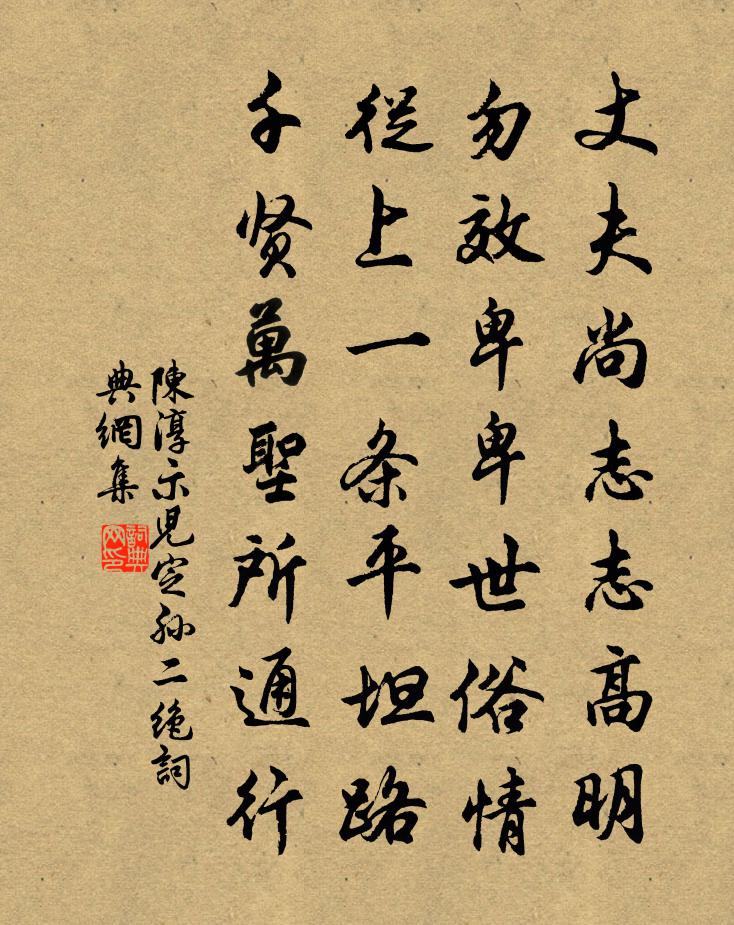 丈夫尚志志高明
勿效卑卑世俗情
從上一条平坦路
千贤萬聖所通行
陳淳示児定孙二绝詞
典網集
詞典网印